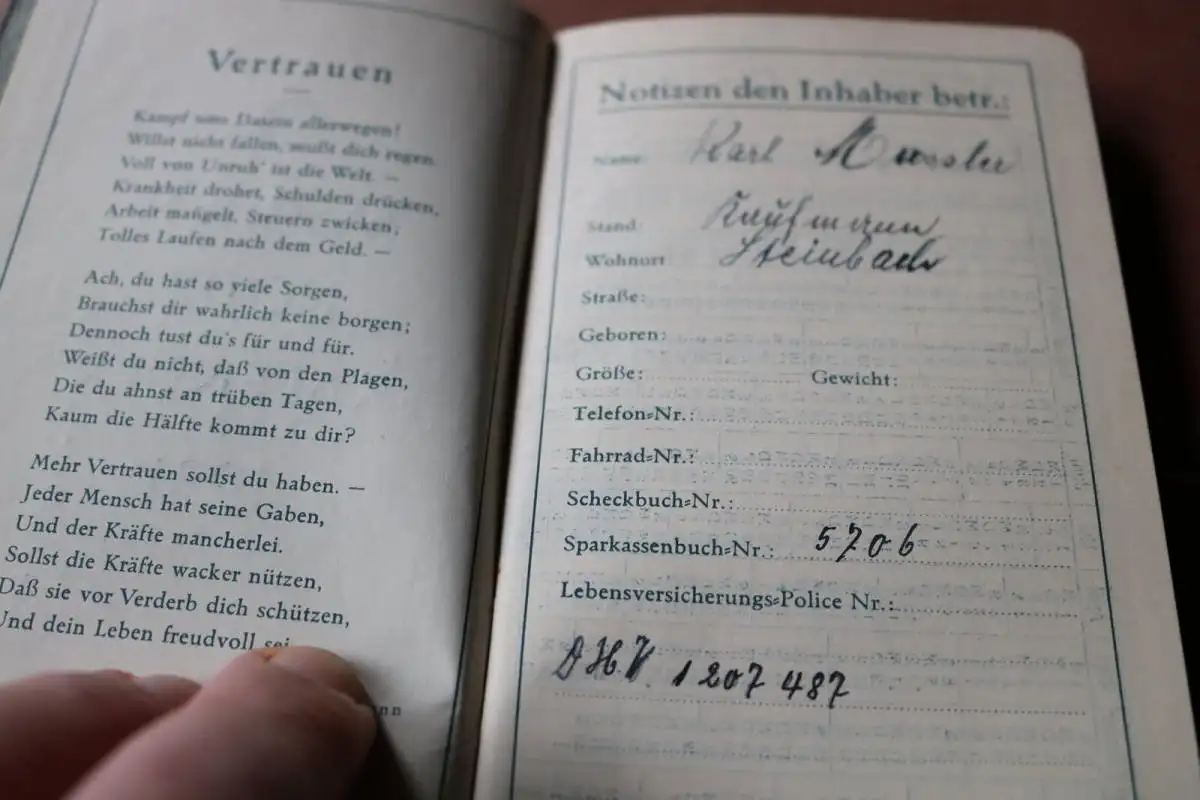 Vertrauen
Kampf ums Dasein allerwegen!
Willst nicht fallen, mußt dich regen.
Voll von Unruh' ist die Welt. —
Krankheit drohet, Schulden drücken,
Arbeit mangelt, Steuern zwicken;
Tolles Laufen nach dem Geld. —
Ach, du hast so viele Sorgen,
Brauchst dir wahrlich keine borgen;
Dennoch tust du's für und für.
Weißt du nicht, daß von den Plagen,
Die du ahnst an trüben Tagen,
Kaum die Hälfte kommt zu dir?
Mehr Vertrauen sollst du haben. —
Jeder Mensch hat seine Gaben,
Und der Kräfte mancherlei.
Sollst die Kräfte wacker nützen,
Daß sie vor Verderb dich schützen,
Und dein Leben freudvoll sei
Notizen den Inhaber betr.:
Name: Karl
Stand: Kaufmann
Wohnort Steinbach
Straße:
Geboren:
Größe: Gewicht:
Telefon=Nr.:
Fahrrad=Nr.:
Scheckbuch=Nr.:
Sparkassenbuch=Nr.: 5706
Lebensversicherungs=Police Nr.:
DHV 1207487